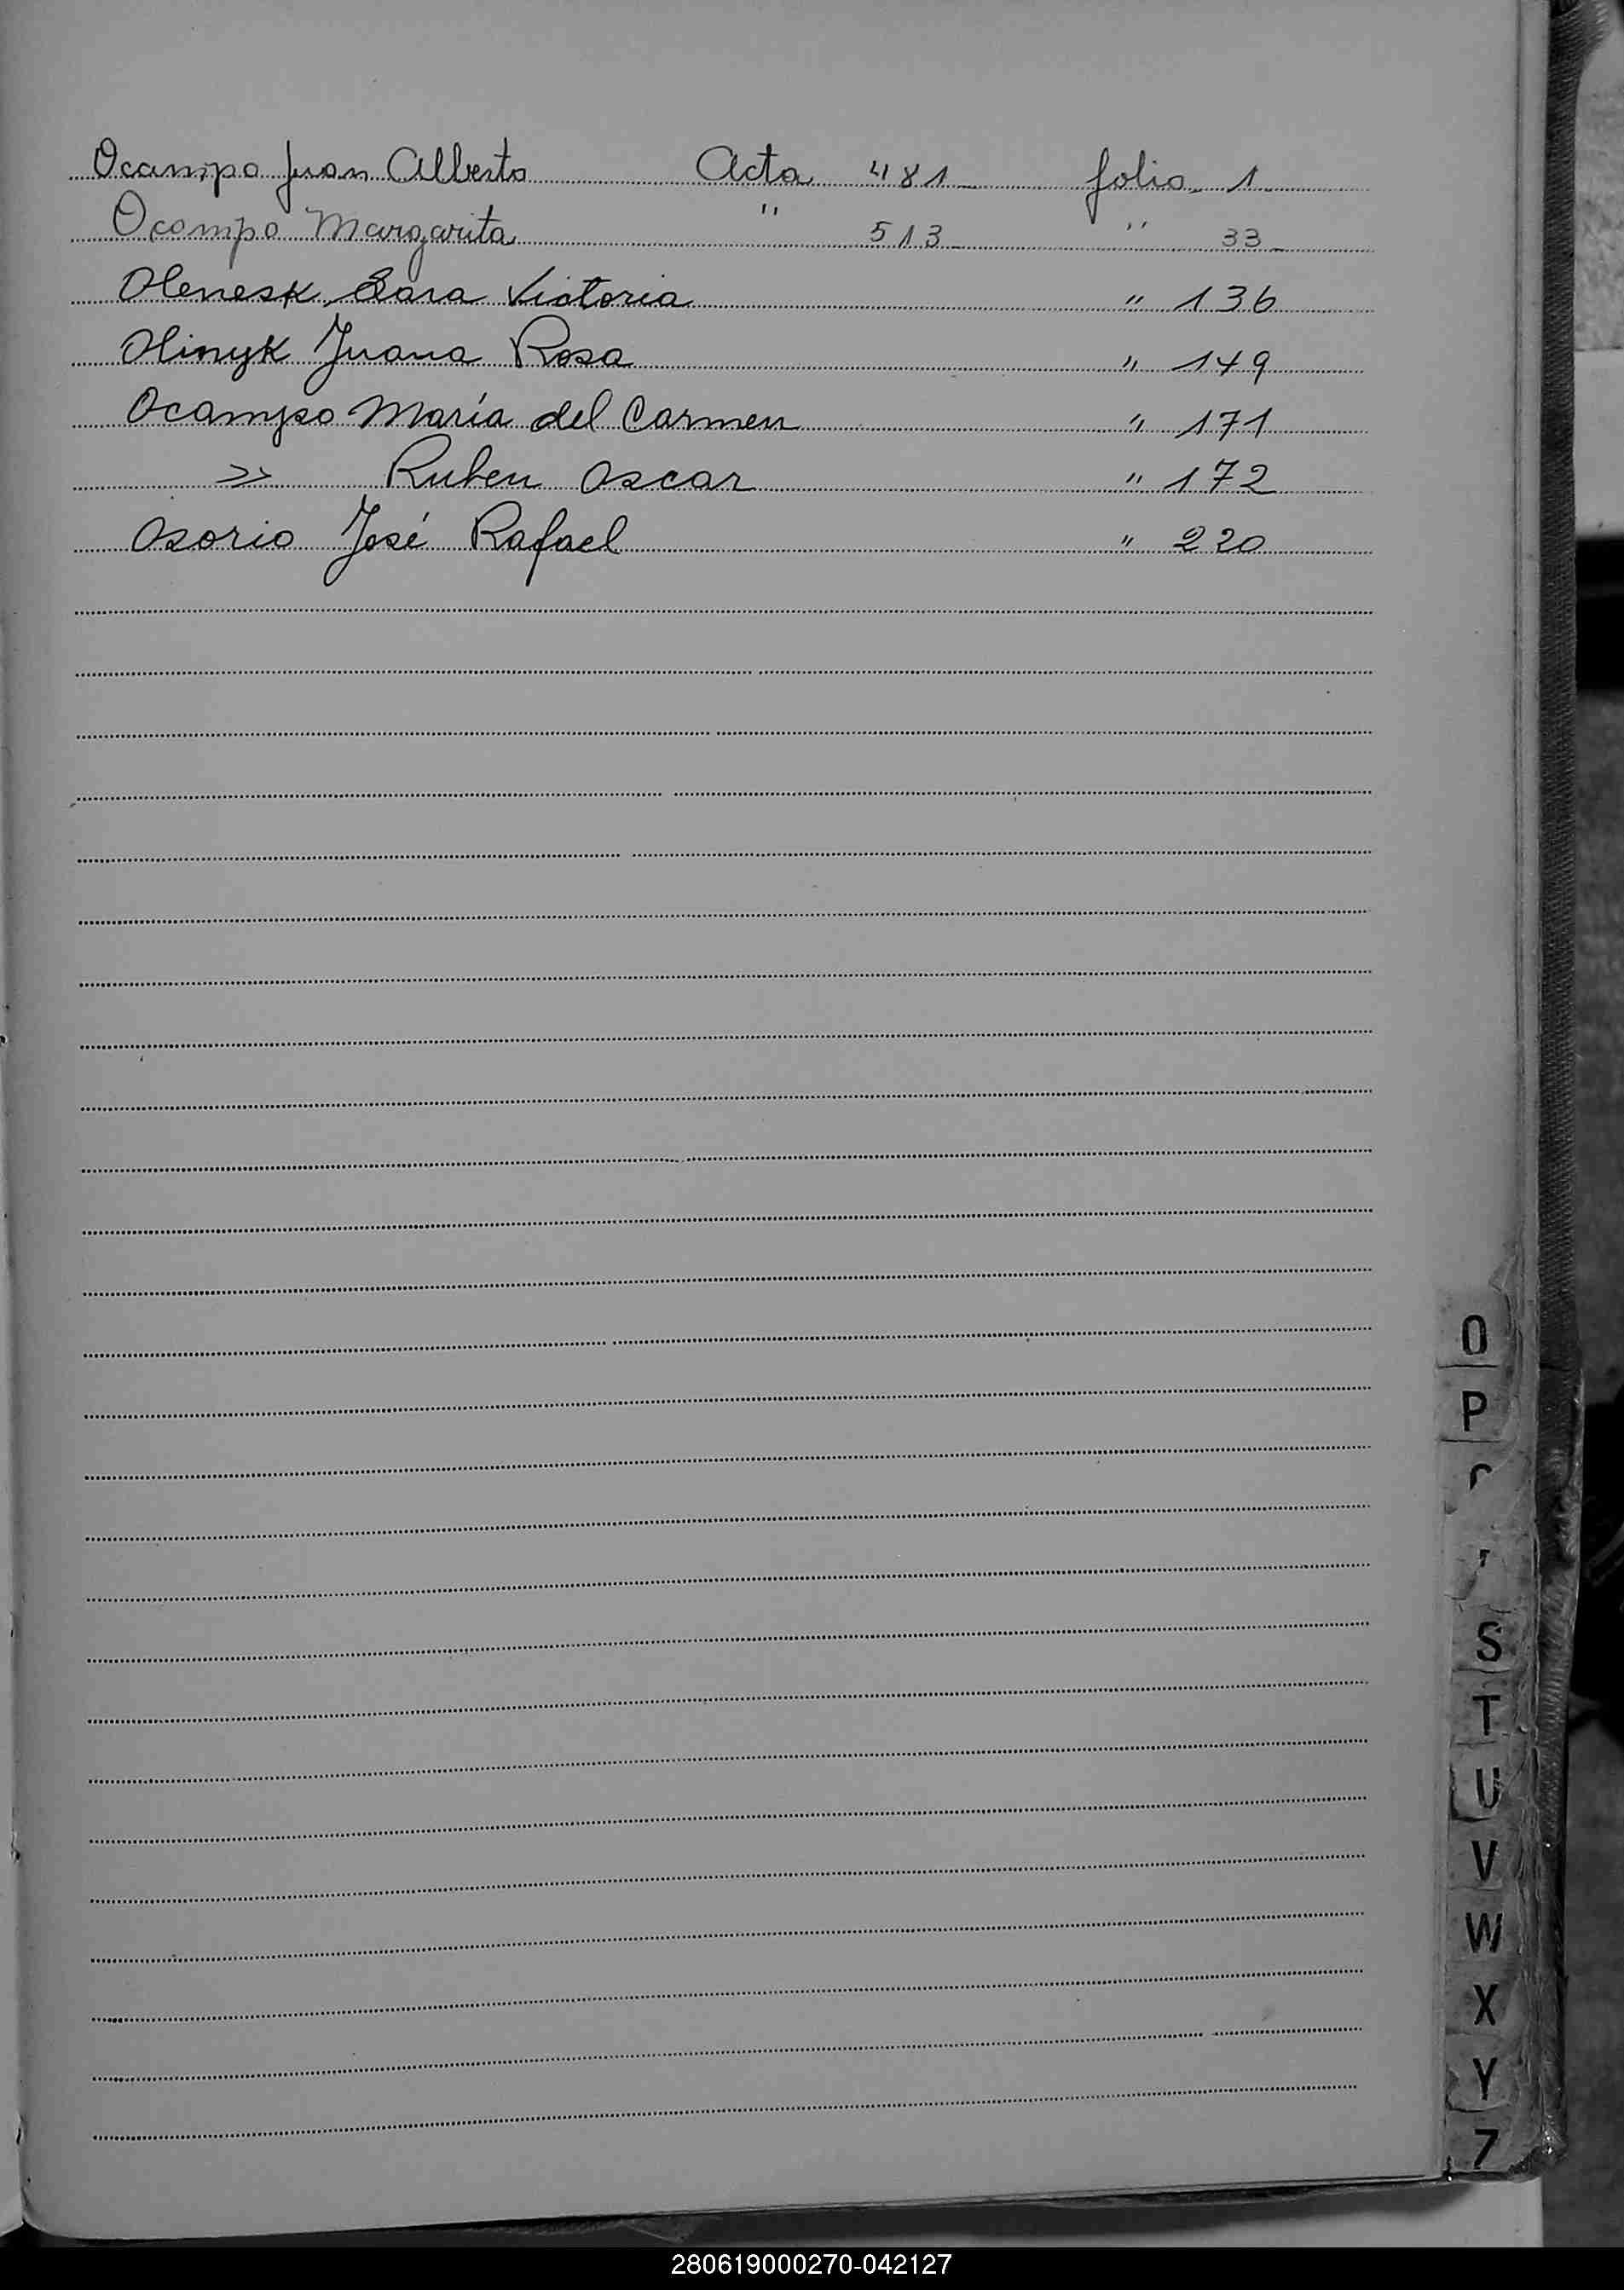 Ocampo Juan Alberto Acta 481 folio 1
Ocampo Margarita " 513 " 33
Olenesk Sara Victoria " 136
Olinyk Juana Rosa " 149
Ocampo María del Carmen " 171
>> Ruben Oscar " 172
Osorio José Rafael " 220
O
P
S
T
U
V
W
X
Y
Z
280619000270-042127